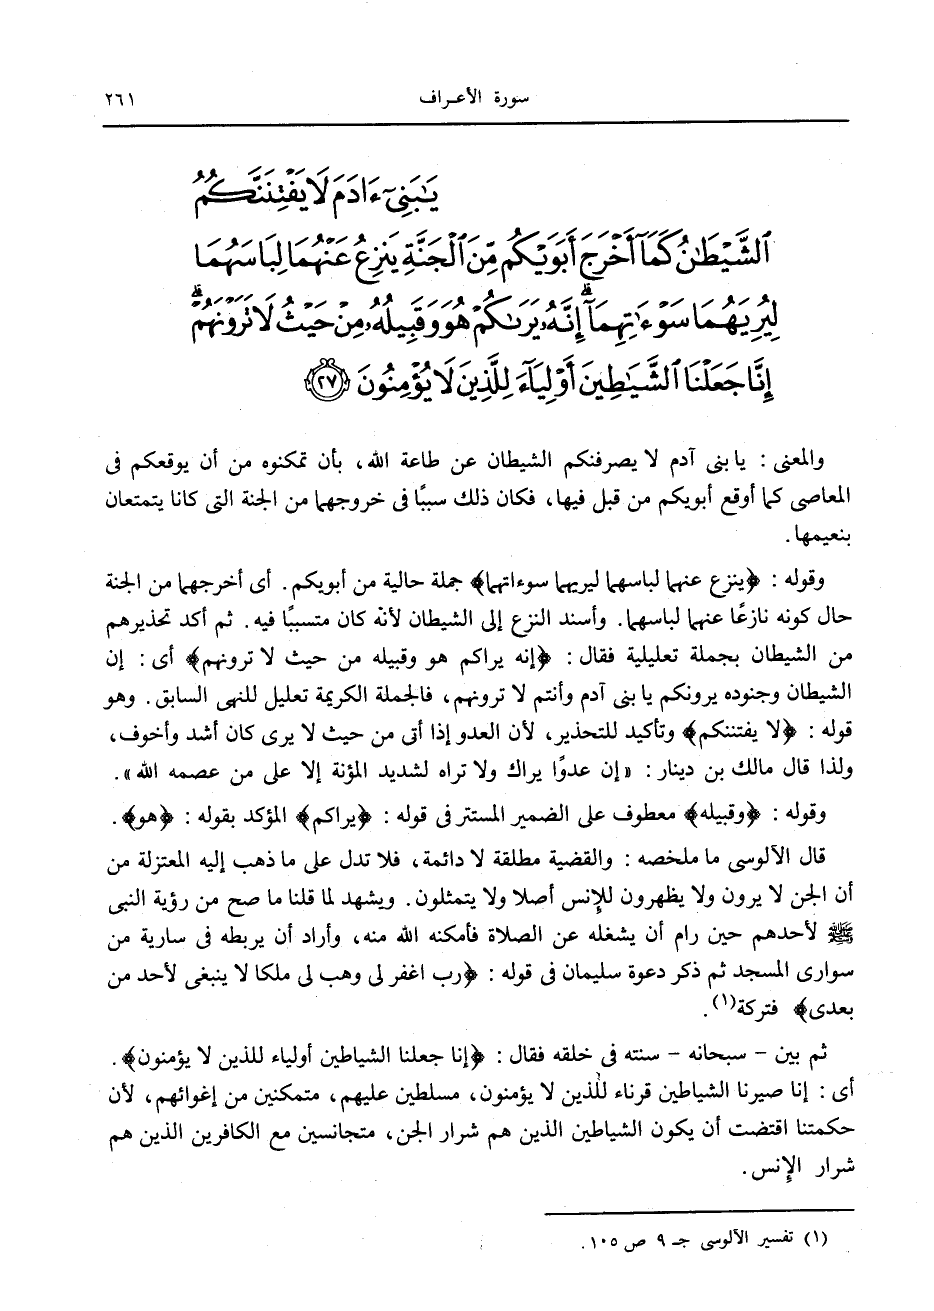 سورة الأعراف ٢٦١
يَٰبَنِىٓ ءَادَمَ لَا يَفْتِنَنَّكُمُ
ٱلشَّيْطَٰنُ كَمَآ أَخْرَجَ أَبَوَيْكُم مِّنَ ٱلْجَنَّةِ يَنزِعُ عَنْهُمَا لِبَاسَهُمَا
لِيُرِيَهُمَا سَوْءَٰتِهِمَآ ۗ إِنَّهُۥ يَرَىٰكُمْ هُوَ وَقَبِيلُهُۥ مِنْ حَيْثُ لَا تَرَوْنَهُمْ ۗ
إِنَّا جَعَلْنَا ٱلشَّيَٰطِينَ أَوْلِيَآءَ لِلَّذِينَ لَا يُؤْمِنُونَ ٢٧
والمعنى : يا بنى آدم لا يصرفنكم الشيطان عن طاعة الله، بأن تمكنوه من أن يوقعكم فى
المعاصى كما أوقع أبويكم من قبل فيها، فكان ذلك سببًا فى خروجهما من الجنة التى كانا يتمتعان
بنعيمها.
وقوله : ﴿ينزع عنهما لباسهما ليريهما سوءاتهما﴾ جملة حالية من أبويكم. أى أخرجهما من الجنة
حال كونه نازعًا عنهما لباسهما. وأسند النزع إلى الشيطان لأنه كان متسببًا فيه. ثم أكد تحذيرهم
من الشيطان بجملة تعليلية فقال : ﴿إنه يراكم هو وقبيله من حيث لا ترونهم﴾ أى : إن
الشيطان وجنوده يرونكم يا بنى آدم وأنتم لا ترونهم، فالجملة الكريمة تعليل للنهى السابق. وهو
قوله : ﴿لا يفتننكم﴾ وتأكيد للتحذير، لأن العدو إذا أتى من حيث لا يرى كان أشد وأخوف،
ولذا قال مالك بن دينار : «إن عدوًا يراك ولا تراه لشديد المؤنة إلا على من عصمه الله».
وقوله : ﴿وقبيله﴾ معطوف على الضمير المستتر فى قوله : ﴿يراكم﴾ المؤكد بقوله : ﴿هو﴾.
قال الآلوسى ما ملخصه : والقضية مطلقة لا دائمة، فلا تدل على ما ذهب إليه المعتزلة من
أن الجن لا يرون ولا يظهرون للإنس أصلا ولا يتمثلون. ويشهد لما قلنا ما صح من رؤية النبى
ﷺ لأحدهم حين رام أن يشغله عن الصلاة فأمكنه الله منه، وأراد أن يربطه فى سارية من
سوارى المسجد ثم ذكر دعوة سليمان فى قوله : ﴿رب اغفر لى وهب لى ملكا لا ينبغى لأحد من
بعدى﴾ فتركة(١).
ثم بين - سبحانه - سنته فى خلقه فقال : ﴿إنا جعلنا الشياطين أولياء للذين لا يؤمنون﴾.
أى : إنا صيرنا الشياطين قرناء للذين لا يؤمنون، مسلطين عليهم، متمكنين من إغوائهم، لأن
حكمتنا اقتضت أن يكون الشياطين الذين هم شرار الجن، متجانسين مع الكافرين الذين هم
شرار الإنس.
(١) تفسير الآلوسى جـ ٩ ص ١٠٥.